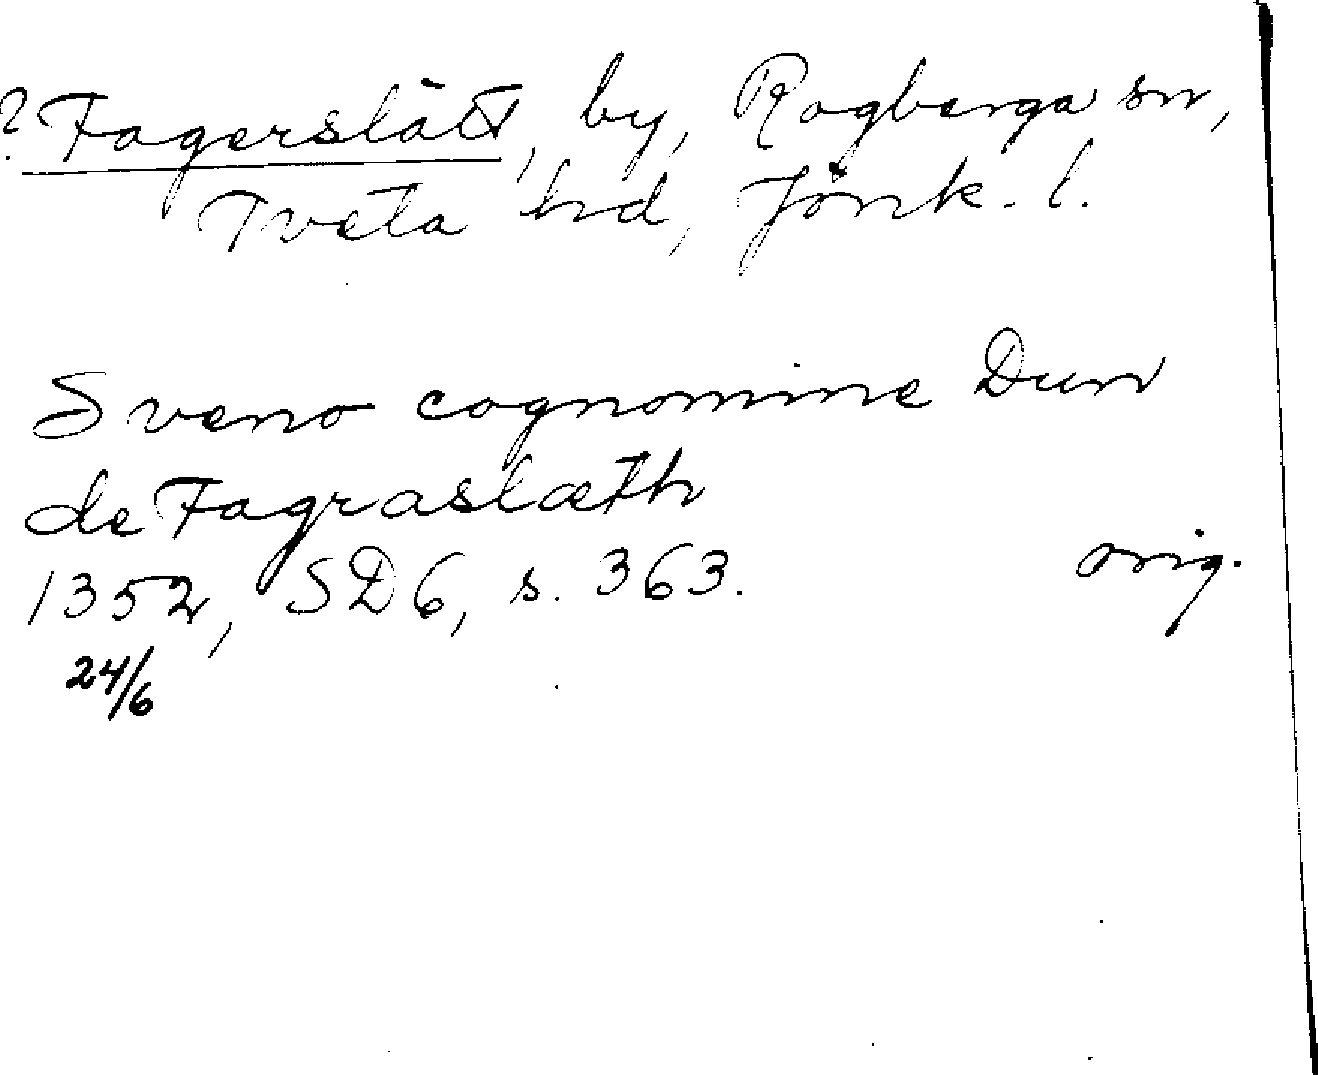 ? Fagerslätt, by, Rogberga sn,
Tveta hd, Jönk. l.
Sveno cognomine Dun
de Fagraslæth
1352, SD 6, s. 363. orig.
24/6